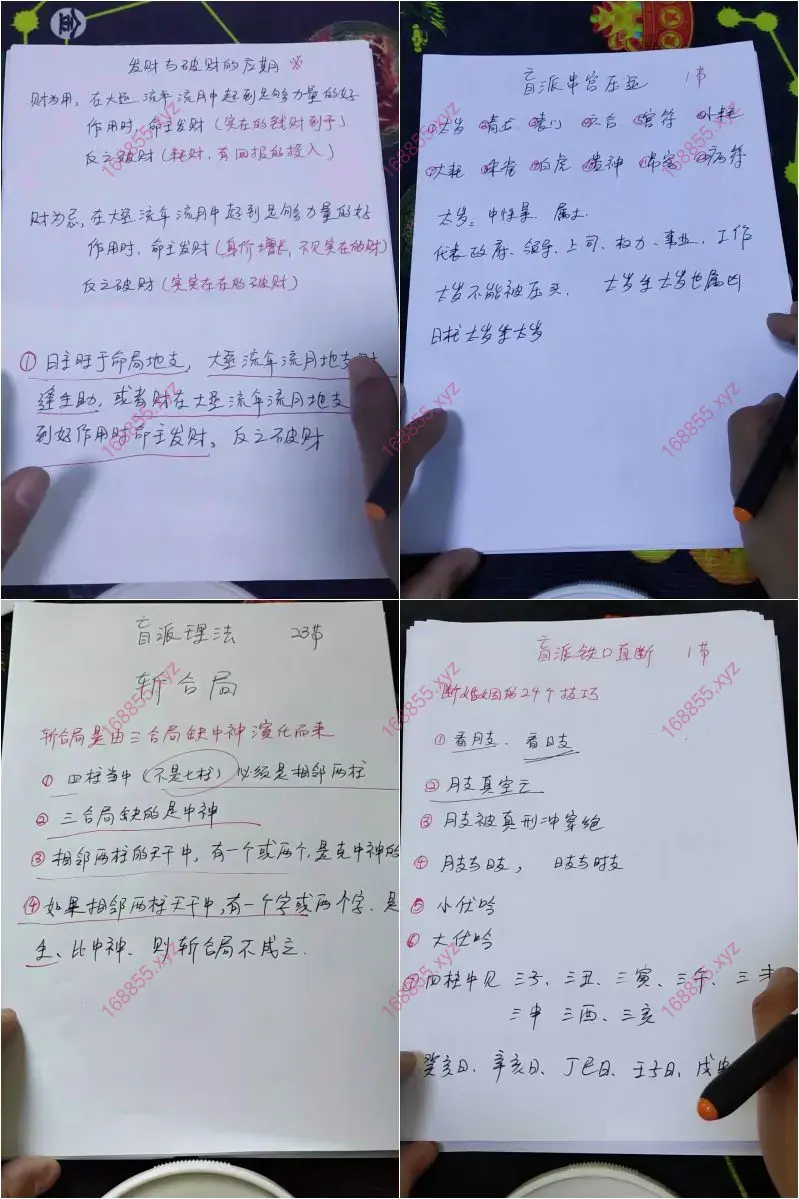 发财与破财的应期 ※
财为用,在大运流年流月中起到足够力量的好
作用时,命主发财(实在的钱财到手)
反之破财(耗财,有回报的投入)
财为忌,在大运流年流月中起到足够力量的好
作用时,命主发财(身价增长,不见实在的财)
反之破财(实实在在的破财)
① 日主旺于命局地支,大运流年流月地支
逢生助,或者财在大运流年流月地支
到好作用时命主发财。反之破财
盲派串宫压运 1节
①太岁 ②青龙 ③丧门 ④六合 ⑤官符 ⑥小耗
⑦大耗 ⑧朱雀 ⑨白虎 ⑩贵神 ⑪吊客 ⑫病符
太岁:中性星.属土.
代表政府、领导、上司、权力、事业、工作
太岁不能被压头. 太岁坐太岁也属凶
日柱太岁坐太岁
盲派理法 23节
斩合局
斩合局是由三合局缺中神演化而来
① 四柱当中(不是七柱)必须是相邻两柱
② 三合局缺的是中神
③ 相邻两柱的天干中,有一个或两个,是克中神的
④ 如果相邻两柱天干中,有一个字或两个字.是
生、比中神、则斩合局不成立.
盲派铁口直断 1节
断婚姻的24个技巧
① 看月支.看日支
② 月支真空亡
③ 月支被真刑冲穿绝
④ 月支与日支, 日支与时支
⑤ 小伏吟
⑥ 大伏吟
⑦ 四柱中见 三子、三丑、三寅、三午、三未
三申 三酉、三亥
癸亥日、辛亥日、丁巳日、壬子日、戊
168855.xyz
168855.xyz
168855.xyz
168855.xyz
168855.xyz
168855.xyz
168855.xyz
168855.xyz
168855.xyz
168855.xyz
168855.xyz
168855.xyz